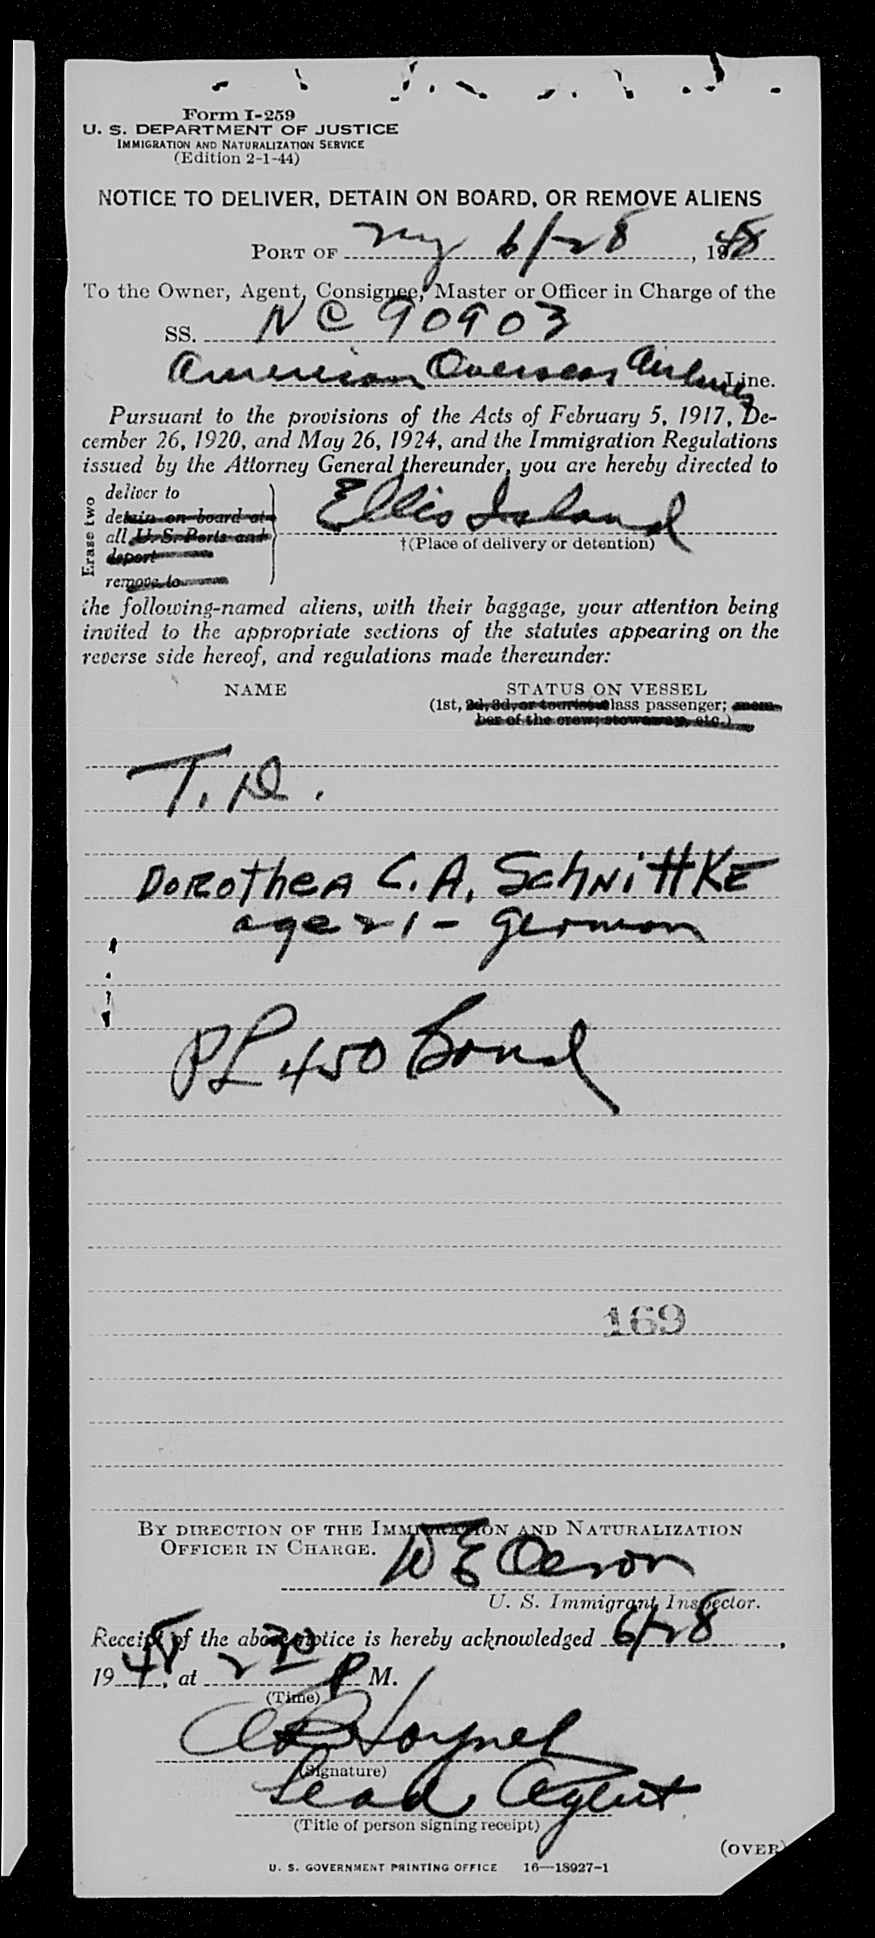 Form I-259
U. S. DEPARTMENT OF JUSTICE
IMMIGRATION AND NATURALIZATION SERVICE
(Edition 2-1-44)
NOTICE TO DELIVER, DETAIN ON BOARD, OR REMOVE ALIENS
PORT OF NY 6/28, 1948
To the Owner, Agent, Consignee, Master or Officer in Charge of the
SS. NC 90903
American Overseas Airlines Line.
Pursuant to the provisions of the Acts of February 5, 1917, De-
cember 26, 1920, and May 26, 1924, and the Immigration Regulations
issued by the Attorney General thereunder, you are hereby directed to
Erase two
deliver to
detain on board at
all U. S. Ports and
deport
remove to
Ellis Island
†(Place of delivery or detention)
the following-named aliens, with their baggage, your attention being
invited to the appropriate sections of the statutes appearing on the
reverse side hereof, and regulations made thereunder:
NAME
STATUS ON VESSEL
(1st, 2d, 3d, or tourist class passenger; mem-
ber of the crew; stowaway, etc.)
T. D.
DOROTHEA C. A. SCHNITTKE
age 21 - German
PL 450 Bond
169
BY DIRECTION OF THE IMMIGRATION AND NATURALIZATION
OFFICER IN CHARGE.
U. S. Immigrant Inspector.
Receipt of the above notice is hereby acknowledged 6/28,
1948, at 2 30 P M.
(Time)
(Signature)
Lead Agent
(Title of person signing receipt)
(OVER)
U. S. GOVERNMENT PRINTING OFFICE 16—18927-1